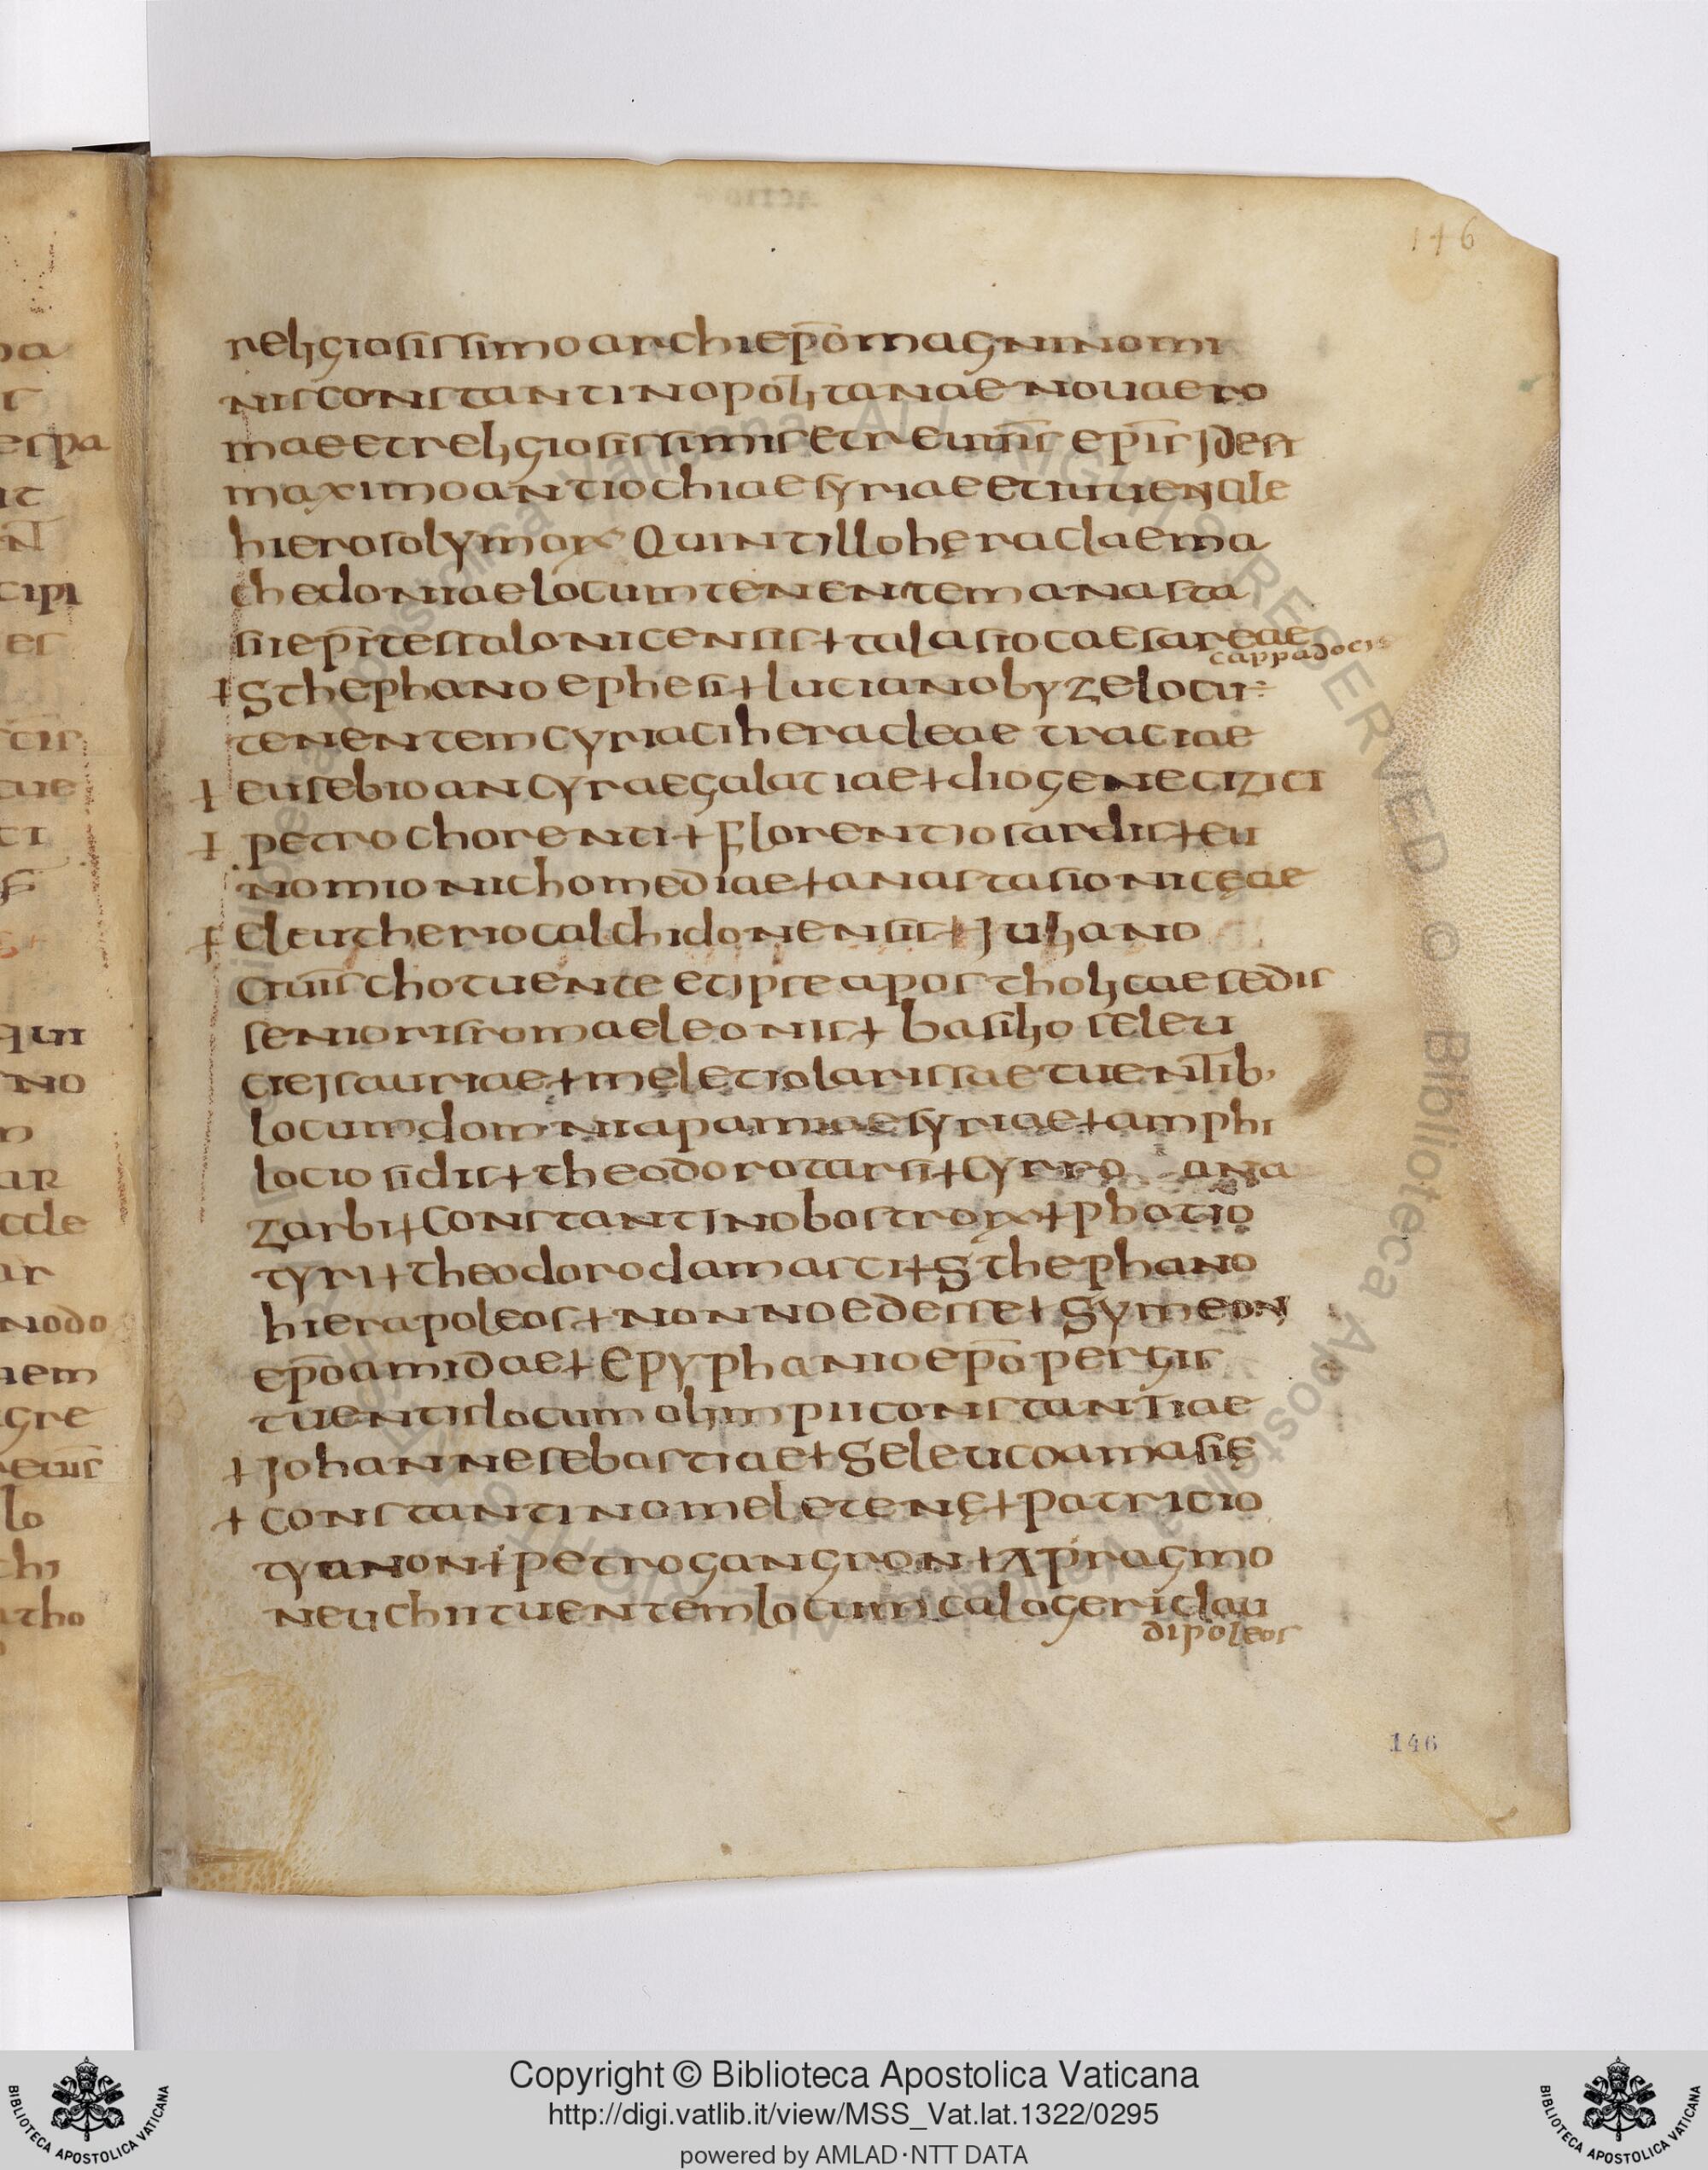 146
religiosissimo archiepō magni nomi
nis constantinopolitanae novae ro
mae et religiosissimis et reuūis epīs idest
maximo antiochiae syriae et iuuenale
hierosolymoꝝ Quintillo heraclae ma
chedoniae locum tenentem anasta
sii epī tessalonicensis + talasio caesareae
cappadocis
+ Sthephano ephesi + luciano byze locū
tenentem cyriaci heracleae traciae
+ eusebio ancyrae galatiae + diogene cizici
+ petro chorenti + florentio sardis + eu
nomio nichomediae + anastasio niceae
+ eleutherio calchidonensis + Iuliano
cruīs cho tuente et ipse apostholicae sedis
senioris romae leonis + basilio seleu
cie isauriae + meletio larissae tuentib,
locum domni apamiae syriae + amphi
locio sidis + theodoro tarsi + cyrro ana
zarbi + constantino bostroꝝ + photio
tyri + theodoro damasci + Sthephano
hierapoleos + nonno edesse + Symeon
epō amidae + epyphanio epō pergis
tuentis locum olimpii constantiae
+ Iohanne sebastiae + Seleuco amasię
+ constantino meletenę + patricio
tyanon + petro gangron + apragmo
neuchii tuentem locum calogeri clau
dipoleos
146
Copyright © Biblioteca Apostolica Vaticana
http://digi.vatlib.it/view/MSS_Vat.lat.1322/0295
powered by AMLAD·NTT DATA
BIBLIOTECA APOSTOLICA VATICANA
BIBLIOTECA APOSTOLICA VATICANA